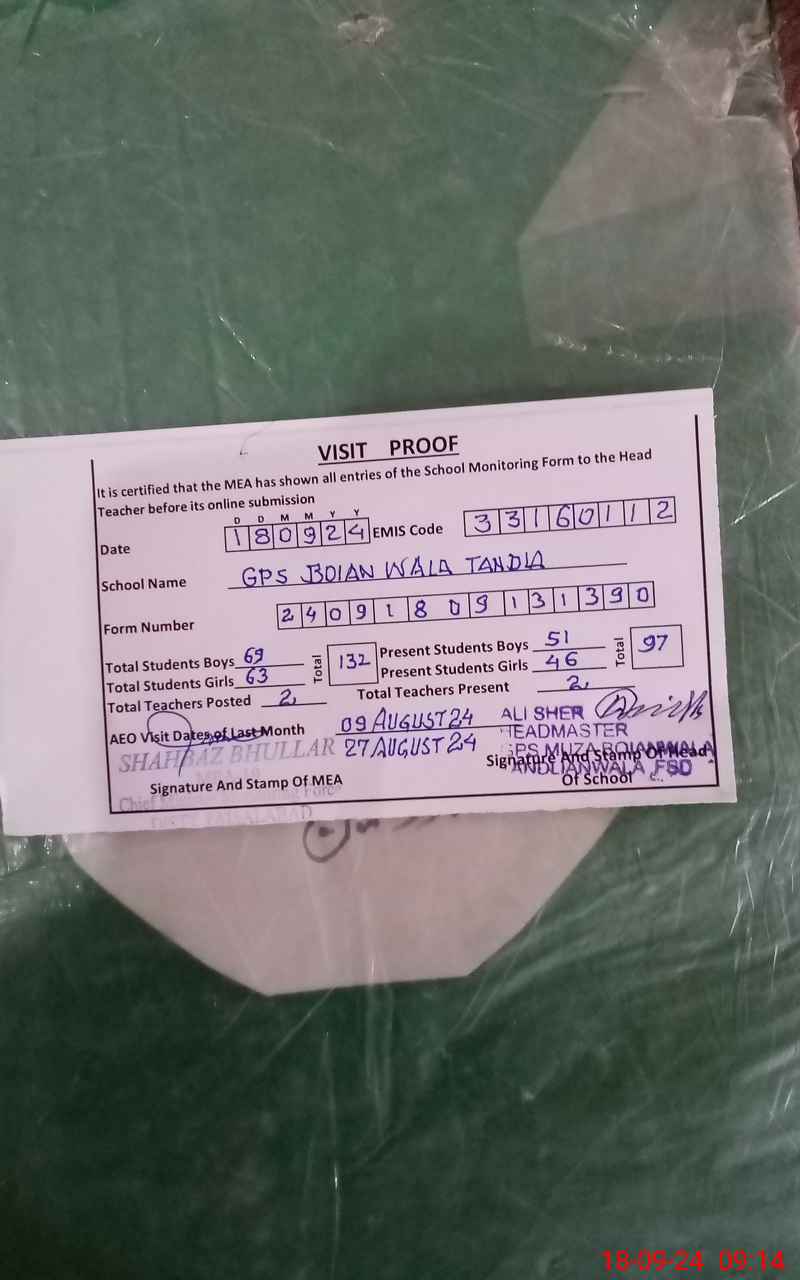 VISIT PROOF
It is certified that the MEA has shown all entries of the School Monitoring Form to the Head
Teacher before its online submission
D D M M Y Y
Date 180924 EMIS Code 33160112
School Name GPS BOIAN WALA TANDLA
Form Number 24091809131390
Total Students Boys 69 Total 132 Present Students Boys 51 Total 97
Total Students Girls 63 Present Students Girls 46
Total Teachers Posted 2 Total Teachers Present 2
AEO Visit Dates of Last Month 09 AUGUST 24
27 AUGUST 24
SHAHBAZ BHULLAR
Chief
FAISALABAD
Signature And Stamp Of MEA
ALI SHER
HEADMASTER
GPS MUZA BOIANWALA
TANDLIANWALA FSD
Signature And Stamp Of Head
Of School
18-09-24 09:14